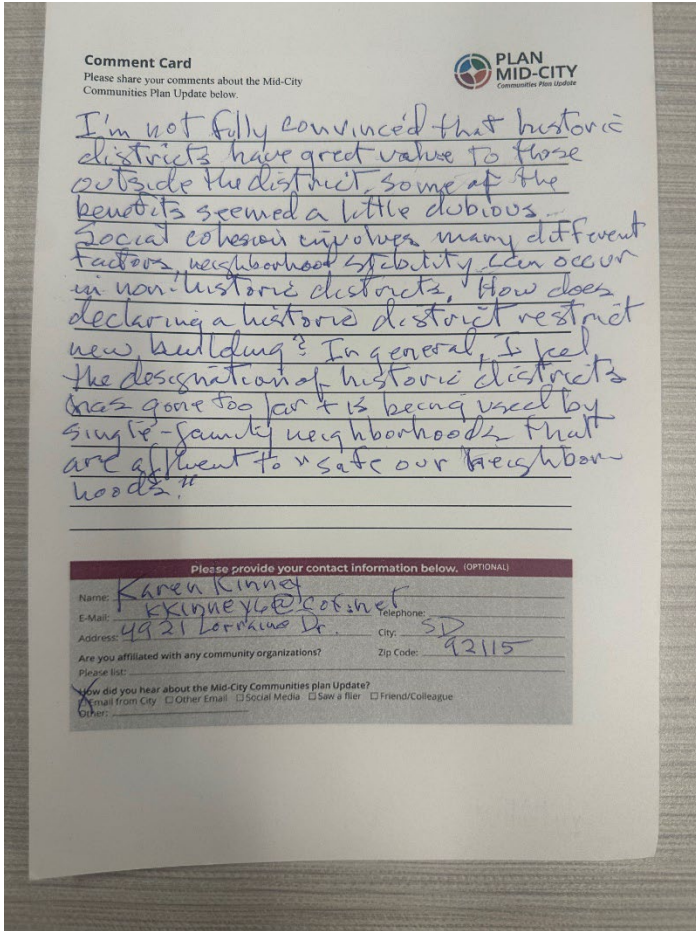 Comment Card
Please share your comments about the Mid-City
Communities Plan Update below.
PLAN
MID-CITY
Communities Plan Update
I'm not fully convinced that historic
districts have great value to those
outside the district. Some of the
benefits seemed a little dubious.
Social cohesion involves many different
factors, neighborhood stability can occur
in non-historic districts. How does
declaring a historic district restrict
new building? In general, I feel
the designation of historic districts
has gone too far + is being used by
single-family neighborhoods that
are affluent to "safe our Neighbor-
hoods."
Please provide your contact information below. (OPTIONAL)
Name: Karen Kinney
E-Mail: kkinney6@cox.net
Telephone:
Address: 4921 Lorraine Dr.
City: SD
Are you affiliated with any community organizations?
Zip Code: 92115
Please list:
How did you hear about the Mid-City Communities plan Update?
Email from City ☐ Other Email ☐ Social Media ☐ Saw a flier ☐ Friend/Colleague
Other: